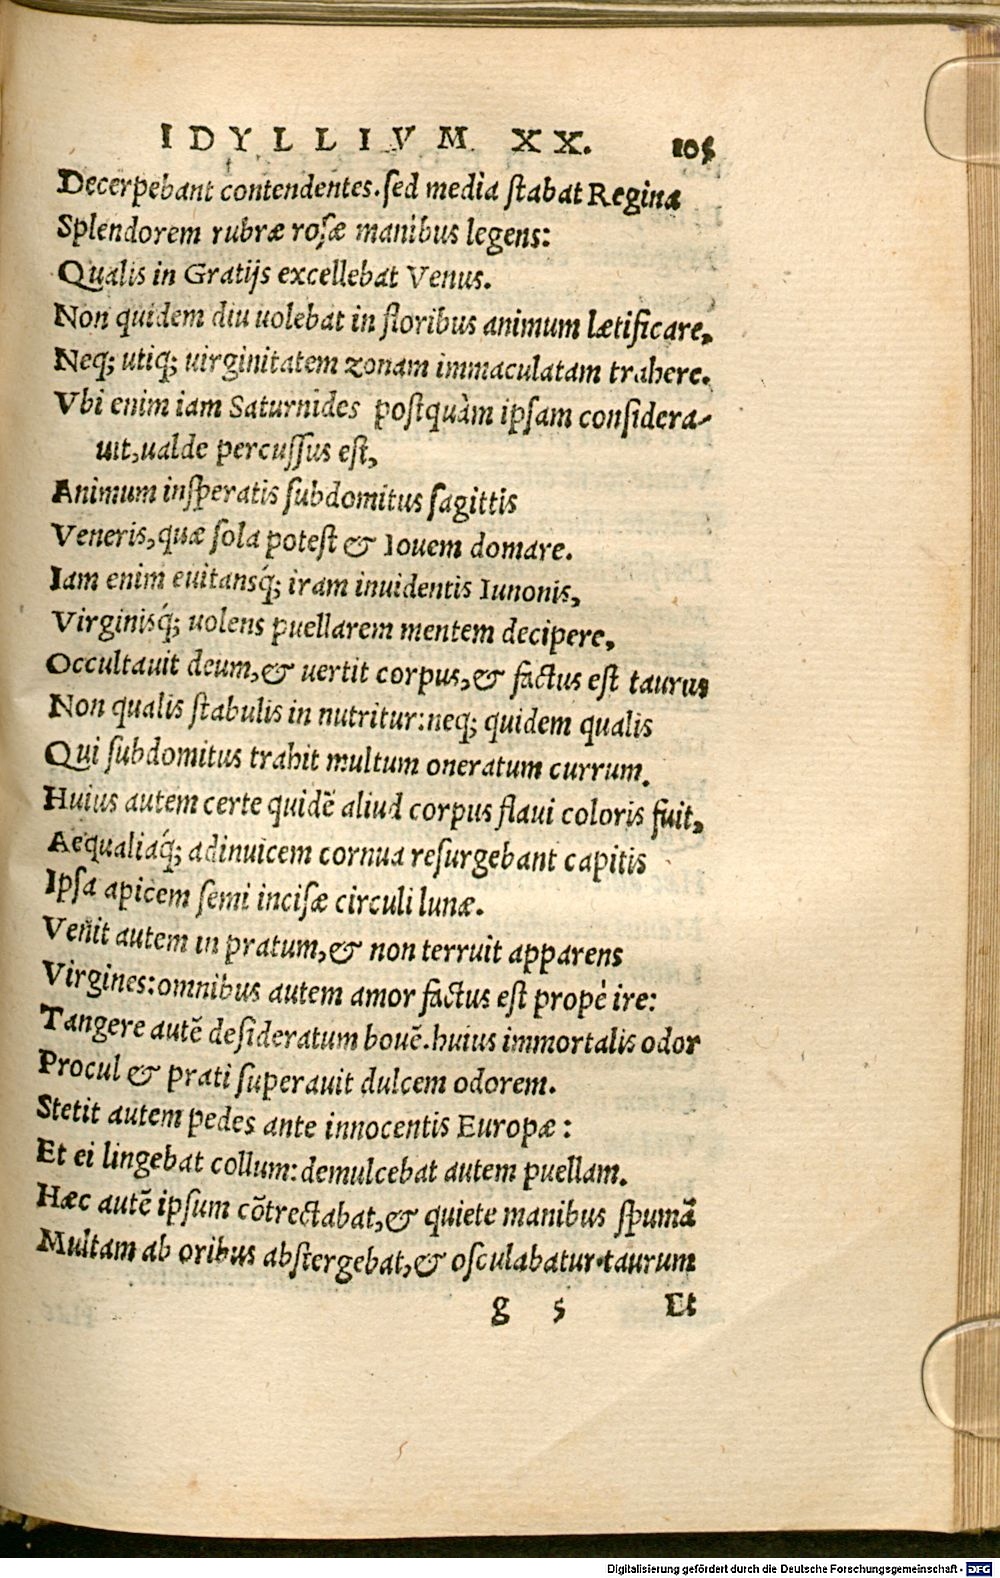 IDYLLIVM XX. 105
Decerpebant contendentes. sed media ſtabat Regina
Splendorem rubræ roſæ manibus legens:
Qualis in Gratijs excellebat Venus.
Non quidem diu uolebat in floribus animum lætificare,
Neq; utiq; uirginitatem zonam immaculatam trahere.
Vbi enim iam Saturnides poſtquàm ipſam conſidera-
uit, ualde percuſſus eſt,
Animum inſperatis ſubdomitus ſagittis
Veneris, quæ ſola poteſt & Iouem domare.
Iam enim euitansq́; iram inuidentis Iunonis,
Virginisq́; uolens puellarem mentem decipere,
Occultauit deum, & uertit corpus, & factus eſt taurus
Non qualis ſtabulis in nutritur: neq; quidem qualis
Qui ſubdomitus trahit multum oneratum currum.
Huius autem certe quidē aliud corpus flaui coloris fuit,
Aequaliaq́; adinuicem cornua reſurgebant capitis
Ipſa apicem ſemi inciſæ circuli lunæ.
Venit autem in pratum, & non terruit apparens
Virgines: omnibus autem amor factus eſt propè ire:
Tangere autē deſideratum bouē. huius immortalis odor
Procul & prati ſuperauit dulcem odorem.
Stetit autem pedes ante innocentis Europæ:
Et ei lingebat collum: demulcebat autem puellam.
Hæc autē ipſum cōtrectabat, & quiete manibus ſpumā
Multam ab oribus abſtergebat, & oſculabatur taurum
g 5 Et
Digitalisierung gefördert durch die Deutsche Forschungsgemeinschaft - DFG